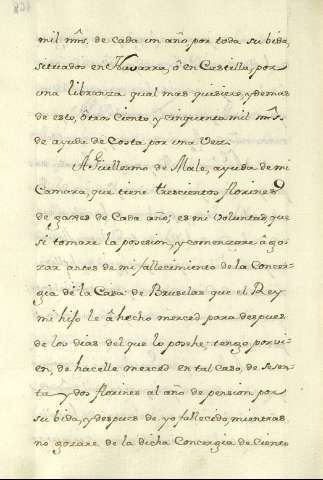 mil mrs. de cada un año por toda su bida,
situados en Navarra, ô en Castilla, por
una libranza qual mas quisiere, y demas
de esto, ôtros Ciento y cinquenta mil mrs.
de ayuda de Costa por una Vez.
A Guillermo de Male, ayuda de mi
Camara, que tiene trescientos florines
de gages de Cada año; es mi voluntad, que
si tomare la posesion, y comenzare â go-
zar antes de mi fallecimiento de la Concer-
gia de la Casa de Bruselas que el Rey
mi hijo le â hecho merced para despues
de los dias del que lo poshe: tengo por vi-
en, de hacelle merced en tal Caso de Sesen-
ta y dos florines al año de pension por
su bida, y despues de yo fallecido, mientras
no gozare de la dicha Concergia de Ciento